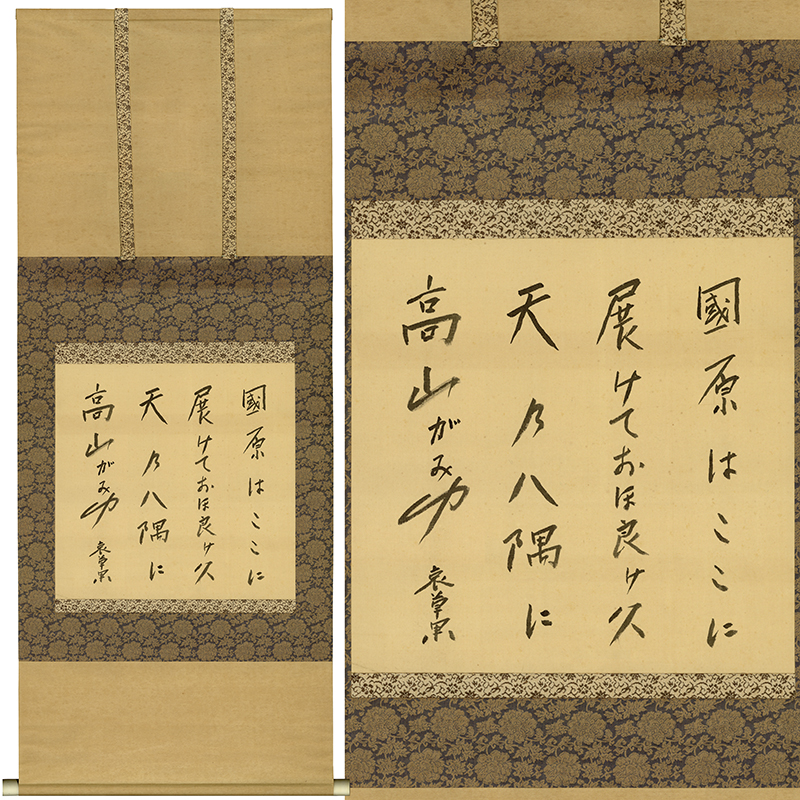 國原はここに
展けておほ良け久
天乃八隅に
高山がみゆ
哀草果
國原はここに
展けておほ良け久
天乃八隅に
高山がみゆ
哀草果